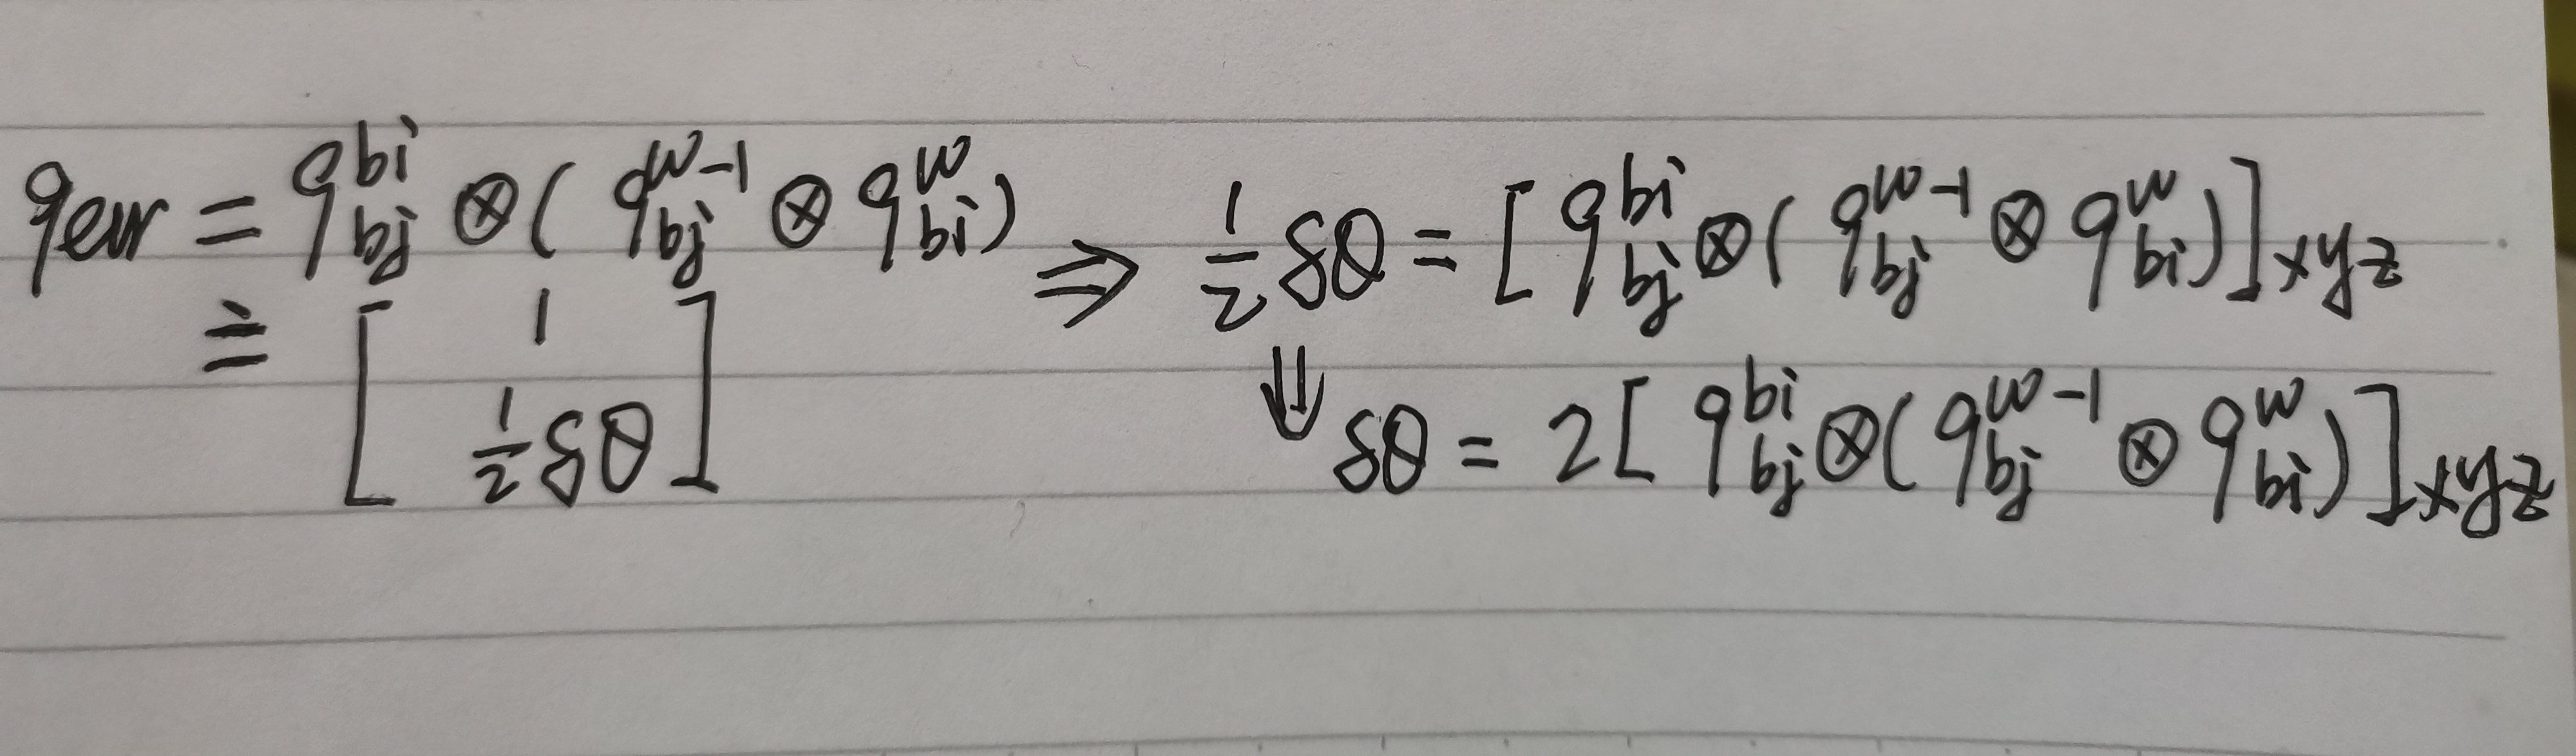 $q_{err} = q_{bj}^{bi} \otimes ( q_{bj}^{w-1} \otimes q_{bi}^{w} ) \Rightarrow \frac{1}{2} \delta\theta = [ q_{bj}^{bi} \otimes ( q_{bj}^{w-1} \otimes q_{bi}^{w} ) ]_{xyz}$
$\doteq \begin{bmatrix} 1 \\ \frac{1}{2} \delta\theta \end{bmatrix} \Downarrow \delta\theta = 2 [ q_{bj}^{bi} \otimes ( q_{bj}^{w-1} \otimes q_{bi}^{w} ) ]_{xyz}$